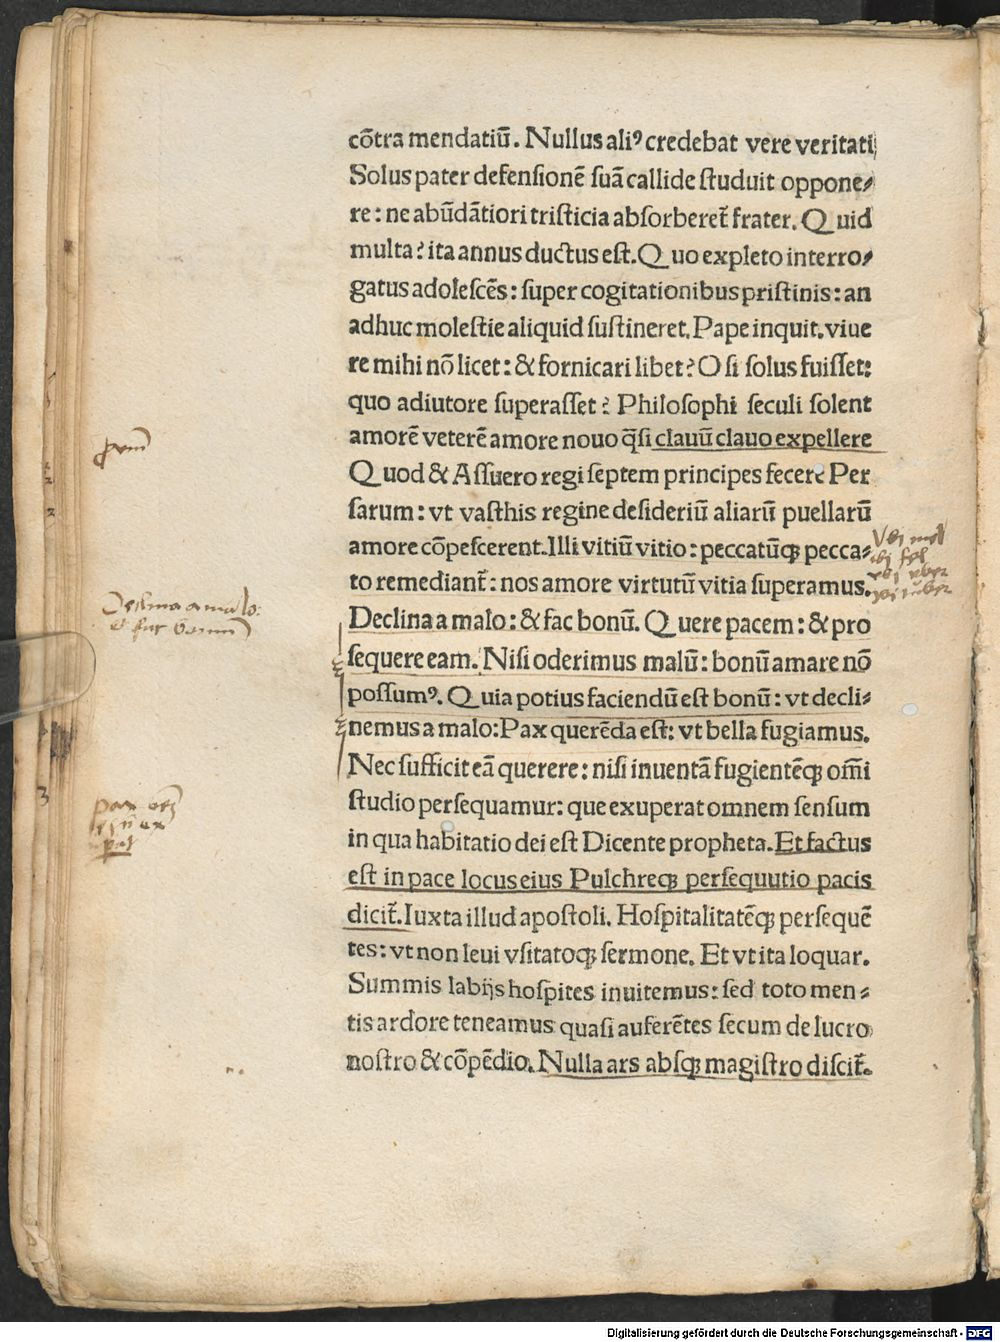 cōtra mendatiū. Nullus aliꝰ credebat vere veritati
Solus pater defensionē suā callide studuit oppone⸗
re: ne abūdātiori tristicia absorberet̄ frater. Quid
multa? ita annus ductus est. Quo expleto interro⸗
gatus adolescēs: super cogitationibus pristinis: an
adhuc molestie aliquid sustineret. Pape inquit. viue
re mihi nō licet: & fornicari libet? O si solus fuisset:
quo adiutore superasset? Philosophi seculi solent
amorē veterē amore nouo q̄si clauū clauo expellere
Quod & Assuero regi septem principes fecere Per
sarum: vt vasthis regine desideriū aliarū puellarū
amore cōpescerent. Illi vitiū vitio: peccatūqꝫ pecca⸗
to remediant̄: nos amore virtutū vitia superamus.
Declina a malo: & fac bonū. Quere pacem: & pro
sequere eam. Nisi oderimus malū: bonū amare nō
possumꝰ. Quia potius faciendū est bonū: vt decli⸗
nemus a malo: Pax querēda est: vt bella fugiamus.
Nec sufficit eā querere: nisi inuentā fugientēqꝫ om̄i
studio persequamur: que exuperat omnem sensum
in qua habitatio dei est Dicente propheta. Et factus
est in pace locus eius Pulchreqꝫ persequutio pacis
dicit̄. Iuxta illud apostoli. Hospitalitatēqꝫ persequē
tes: vt non leui vsitatoqꝫ sermone. Et vt ita loquar.
Summis labijs hospites inuitemus: sed toto men⸗
tis ardore teneamus quasi auferētes secum de lucro
nostro & cōpēdio. Nulla ars absqꝫ magistro discit̄.
Vbi mel
ibi fel
vbi vber
ibi tuber
Declina a malo:
et fac bonum
3
Digitalisierung gefördert durch die Deutsche Forschungsgemeinschaft - DFG